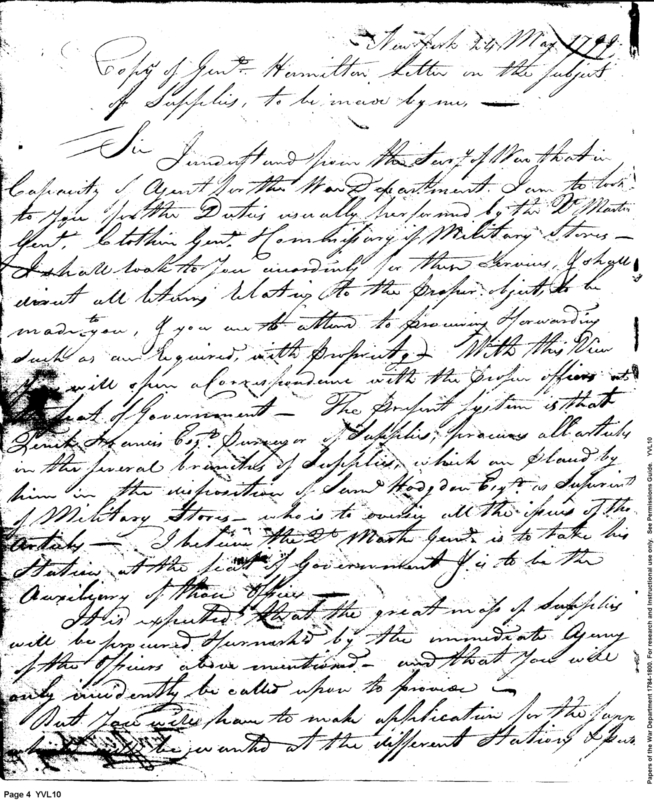 New York 24 May 1799
Copy of Genl. Hamilton Letter on the subject
of Supplies, to be made by me,
Sir
I understand from the Secy. of War that in
Capacity of Agent for the War Department I am to look
to You for the Duties usually performed by the Qr Master
Genl. Clothier Genl. & Commissary of Military Stores —
I shall look to You accordingly for these Services, & shall
direct all returns relating to the proper objects, to be
made to you, & you are to attend to procuring & forwarding
such as are required, with propriety — With this View
You will open a Correspondence with the proper officers at
the seat of Government — The present System is that
Tench Francis Esqr. Purveyor of Supplies, procures all articles
in the several branches of Supplies, which are placed by
him in the disposition of Saml Hodgdon Esqr. as Superint
of Military Stores — who is to oversee all the issues of the
Articles — the Qr Master Genl. is to take his
Station at the seat of Government & is to be the
Auxiliary of those Offices —
It is expected that the great mass of Supplies
will be procured & furnished by the immediate Agency
of the Officers above mentioned — and that You will
only incidently be called upon to provide —
But You will have to make application for the
be wanted at the different Stations &
Papers of the War Department 1784-1800. For research and instructional use only. See Permissions Guide. YVL10
Page 4 YVL10